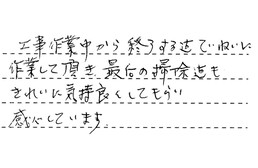 工事作業中から終了する迄ていねいに
作業して頂き最后の掃除迄も
きれいに気持良くしてもらい
感心しています。